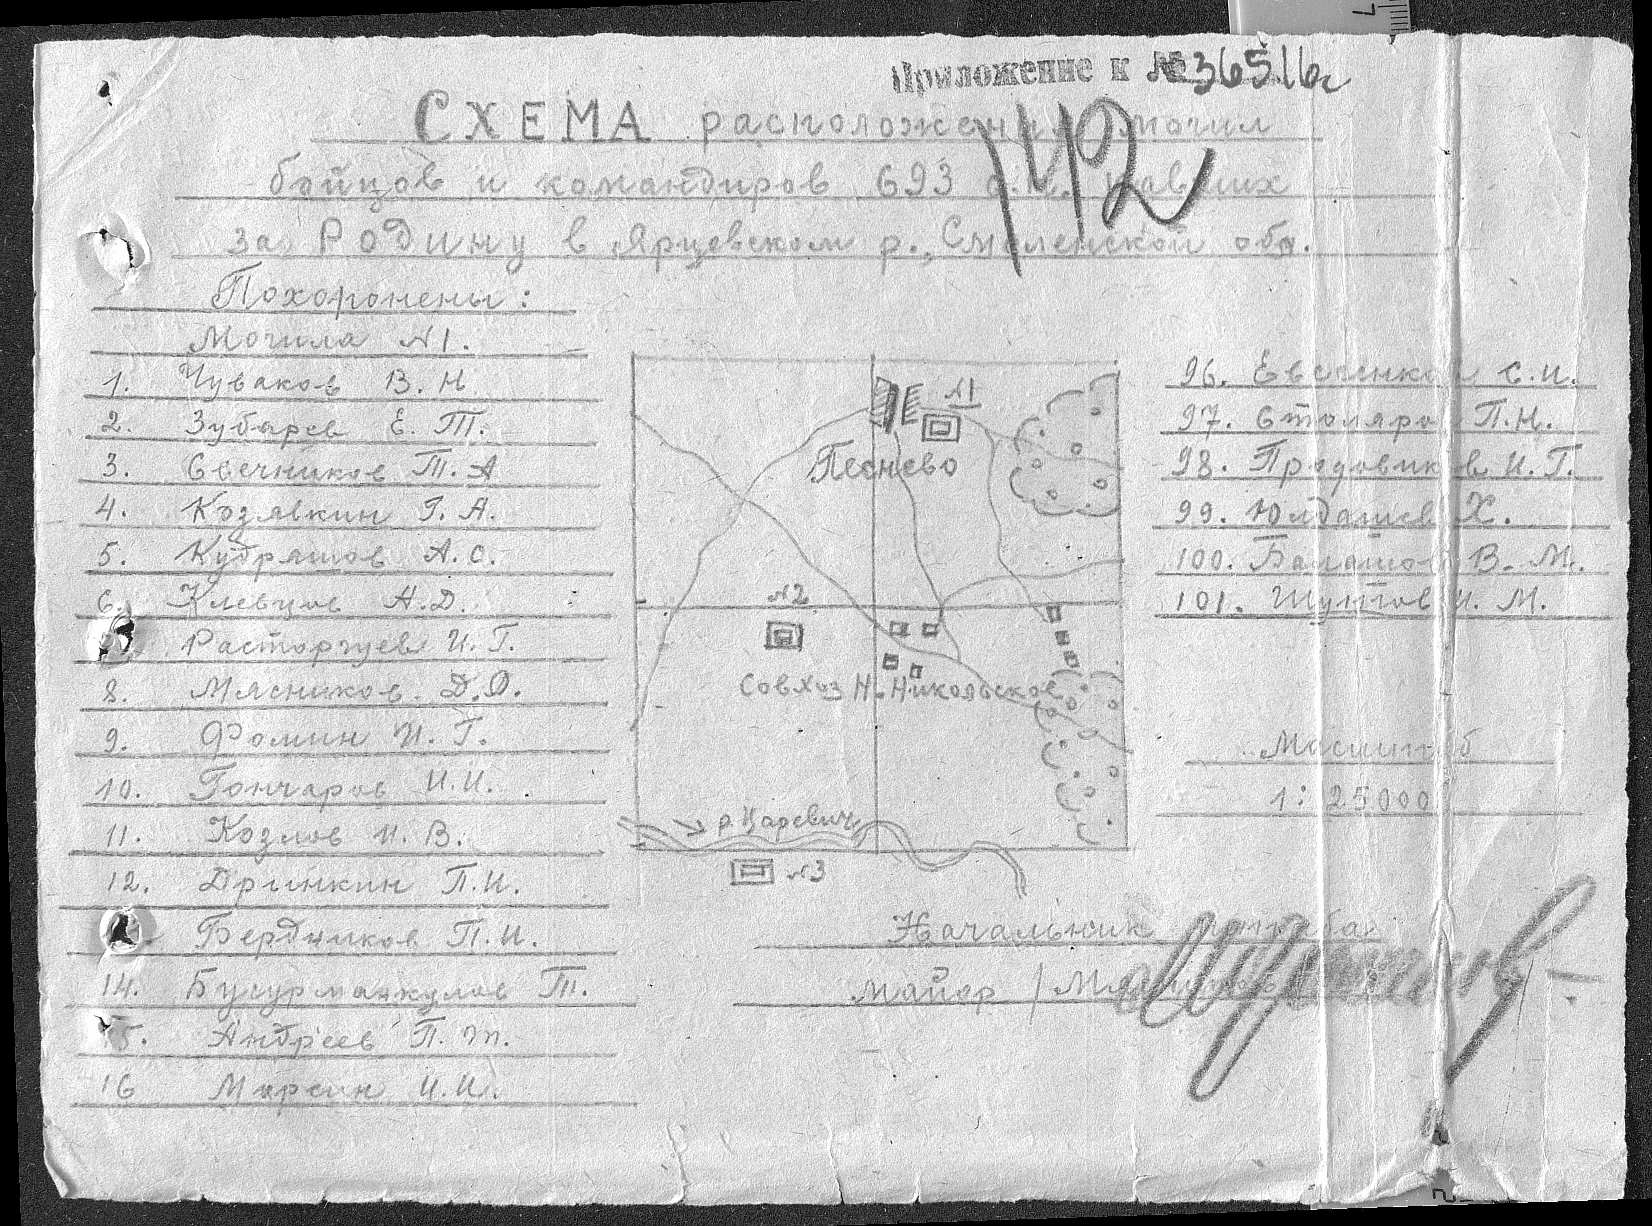 Приложение к № 36516с
142
СХЕМА расположения могил
бойцов и командиров 693 с.п. павших
за Родину в Ярцевском р., Смоленской обл.
Похоронены:
Могила N1.
1. Чуваков В.Н
2. Зубарев Е.Т.
3. Свечников Т.А
4. Козявкин Г.А.
5. Кудряшов А.С.
6. Клевцов А.Д.
Расторгуев И.Г.
8. Мясников Д.Д.
9. Фомин И.Г.
10. Гончаров И.И.
11. Козлов И.В.
12. Дрынкин П.И.
Бердников П.И.
14. Бусурманкулов Т.
5. Андреев П.М.
16 Марсин И.И.
N1
Песнево
N2
Совхоз Н.-Никольское
р. Царевич
N3
96. Евсеенков С.И.
97. Столяров П.Н.
98. Продовиков И.Г.
99. Юлдашев Х.
100. Балашов В.М.
101. Шутов И.М.
Масштаб
1:25000
Начальник штаба
майор